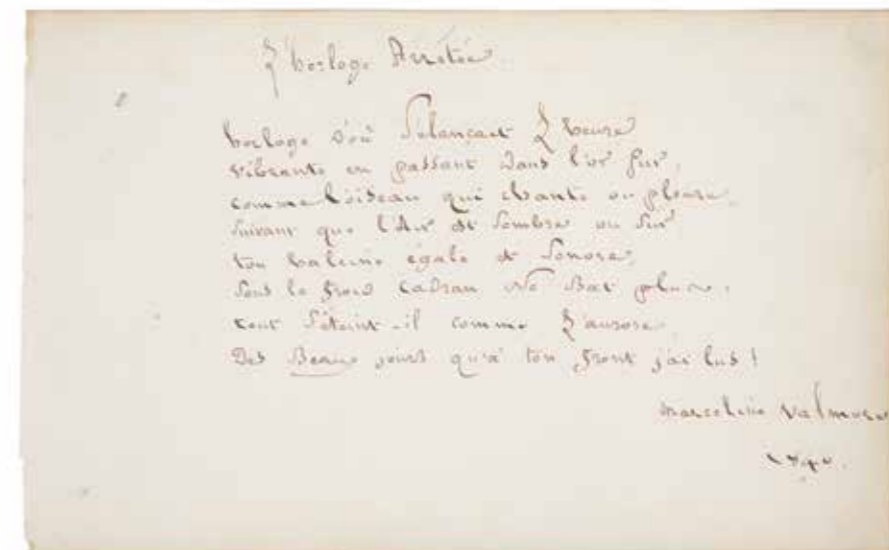 L'horloge Arrêtée
horloge d'où s'élançait L'heure
vibrante en passant dans l'or pur,
comme l'oiseau qui chante ou pleure
suivant que l'Air est sombre ou sur
ton haleine égale et sonore,
sous le froid cadran Ne Bat plus.
tout s'éteint-il comme L'aurore
Des Beaux jours qu'à ton front j'ai lus!
Marceline Valmore